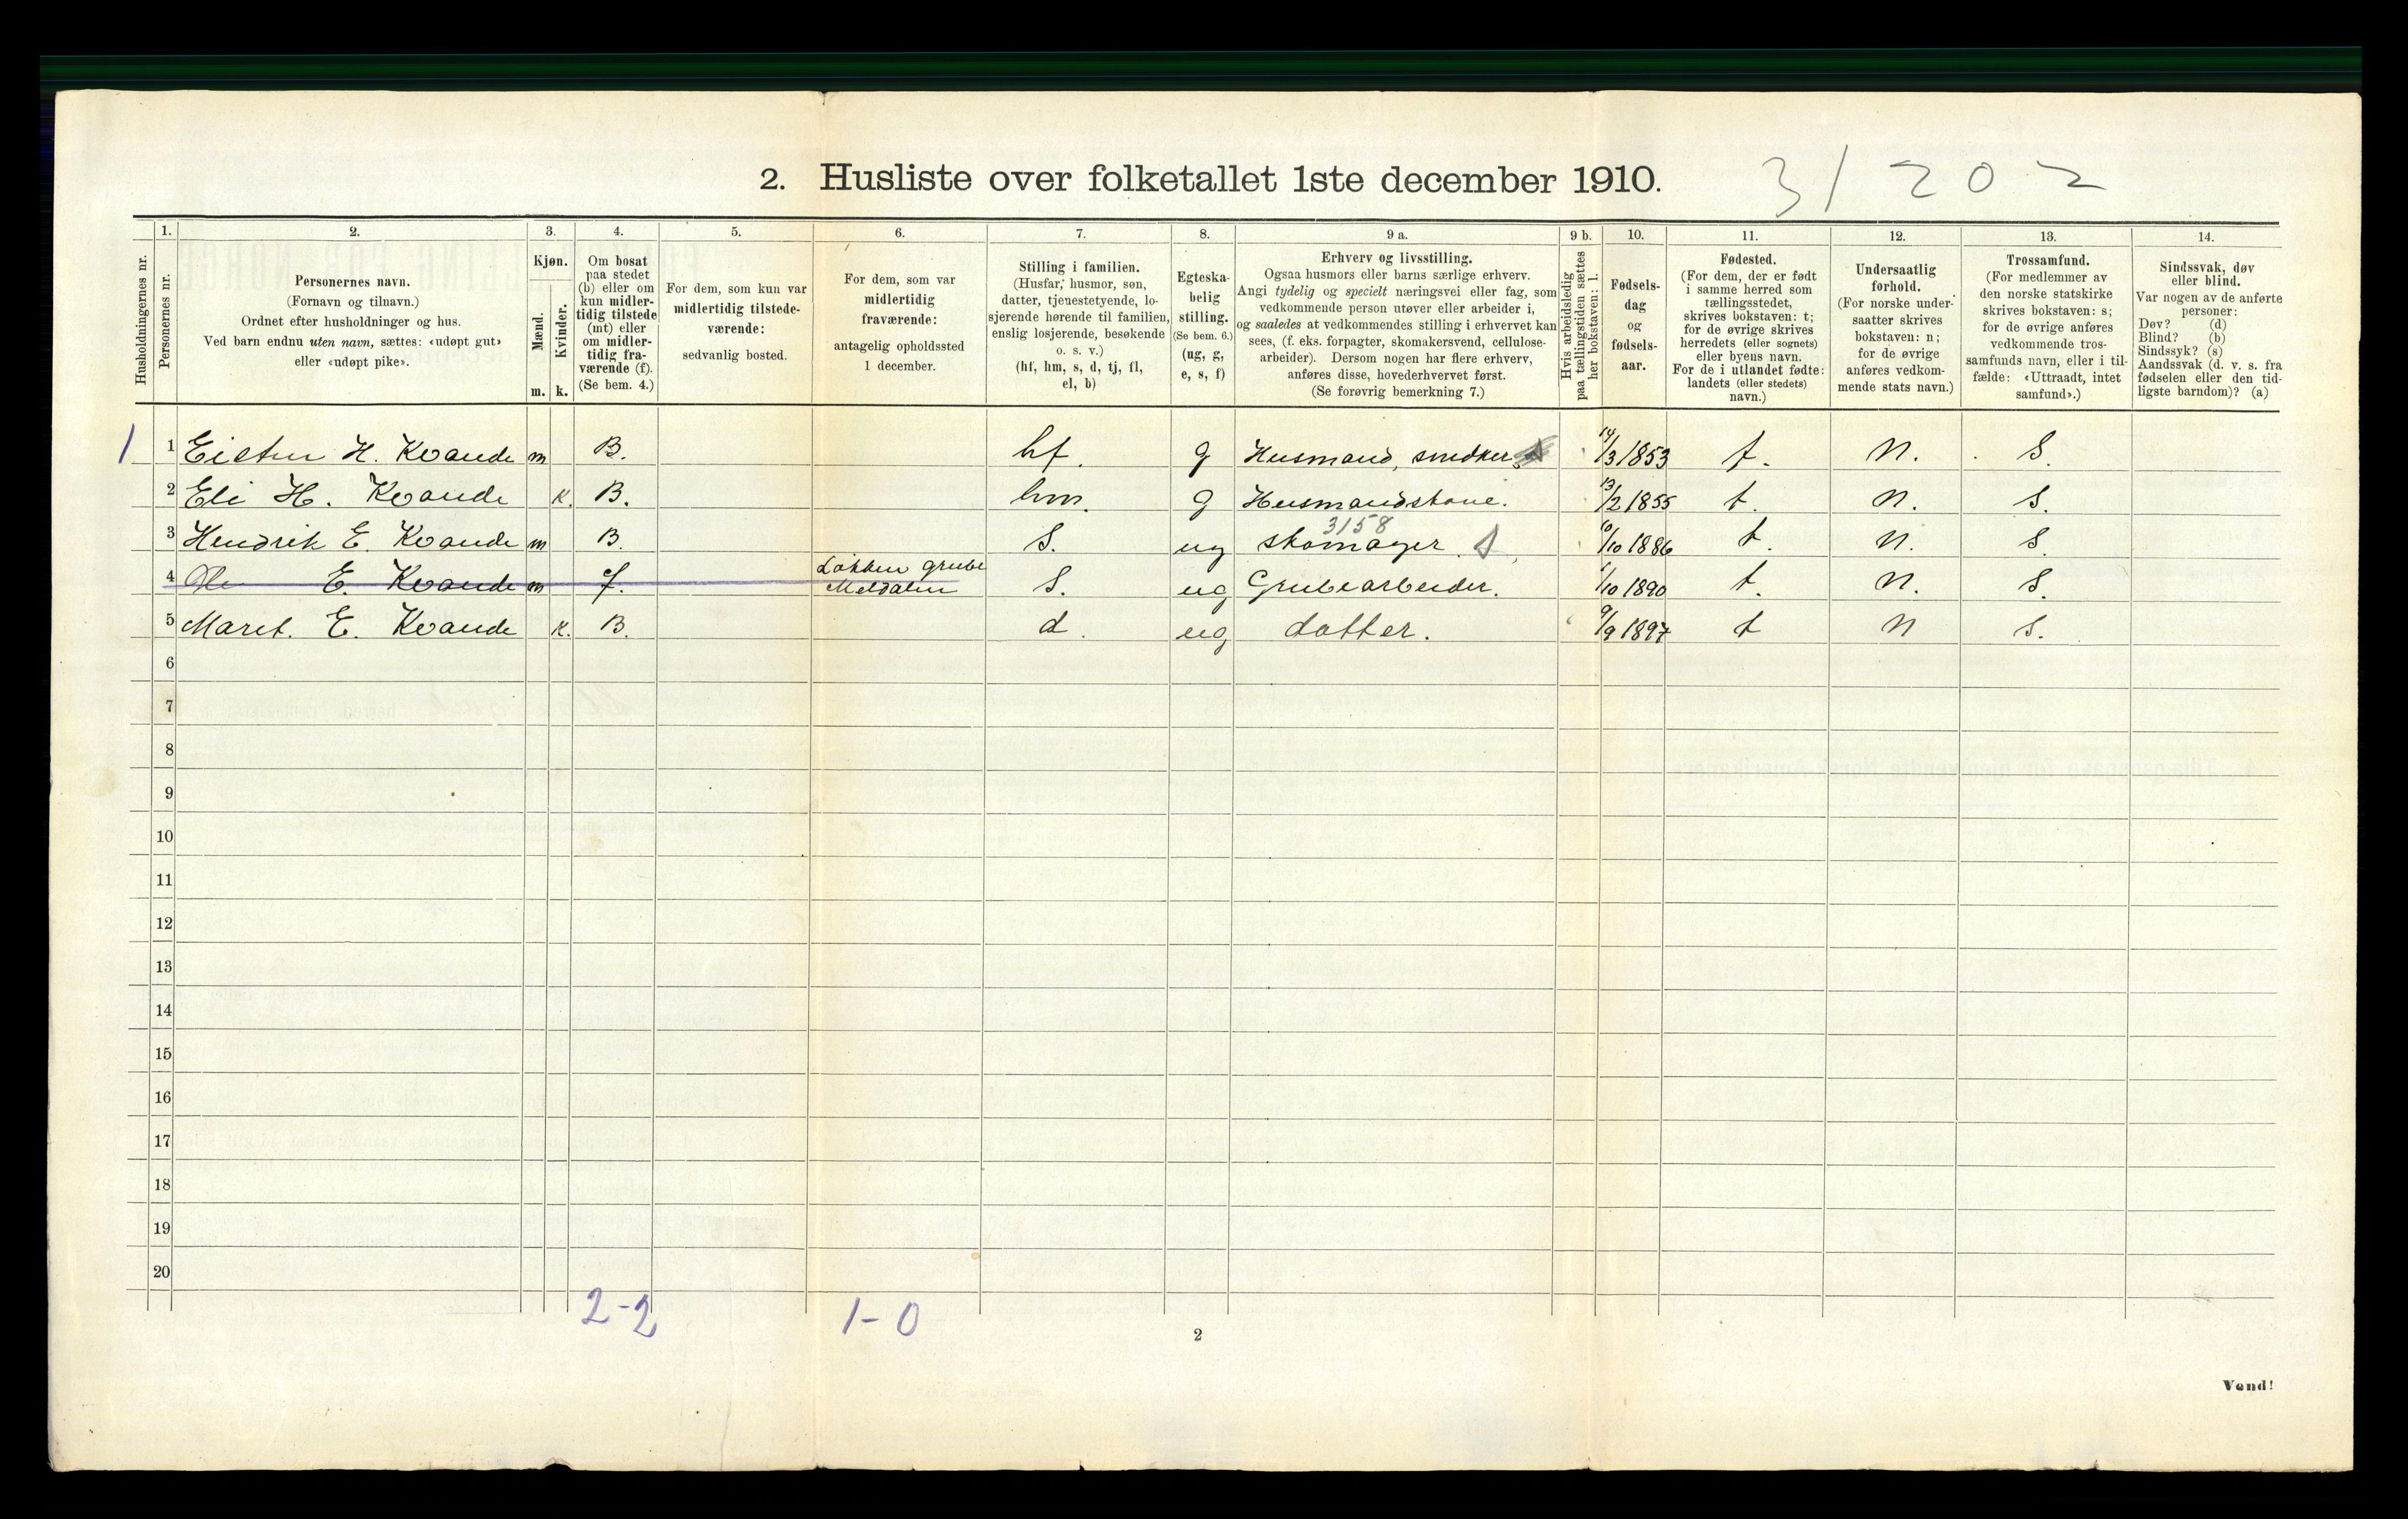 2. Husliste over folketallet 1ste december 1910.
31 202
Husholdningernes nr.
1.
Personernes nr.
2.
Personernes navn.
(Fornavn og tilnavn.)
Ordnet efter husholdninger og hus.
Ved barn endnu uten navn, sættes: «udøpt gut»
eller «udøpt pike».
3.
Kjøn.
Mænd.
Kvinder.
m. k.
4.
Om bosat
paa stedet
(b) eller om
kun midler-
tidig tilstede
(mt) eller
om midler-
tidig fra-
værende (f).
(Se bem. 4.)
5.
For dem, som kun var
midlertidig tilstede-
værende:
sedvanlig bosted.
6.
For dem, som var
midlertidig
fraværende:
antagelig opholdssted
1 december.
7.
Stilling i familien.
(Husfar, husmor, søn,
datter, tjenestetyende, lo-
sjerende hørende til familien,
enslig losjerende, besøkende
o. s. v.)
(hf, hm, s, d, tj, fl,
el, b)
8.
Egteska-
belig
stilling.
(Se bem. 6.)
(ug, g,
e, s, f)
9 a.
Erhverv og livsstilling.
Ogsaa husmors eller barns særlige erhverv.
Angi tydelig og specielt næringsvei eller fag, som
vedkommende person utøver eller arbeider i,
og saaledes at vedkommendes stilling i erhvervet kan
sees, (f. eks. forpagter, skomakersvend, cellulose-
arbeider). Dersom nogen har flere erhverv,
anføres disse, hovederhvervet først.
(Se forøvrig bemerkning 7.)
9 b.
Hvis arbeidsledig
paa tællingstiden sættes
her bokstaven: l.
10.
Fødsels-
dag
og
fødsels-
aar.
11.
Fødested.
(For dem, der er født
i samme herred som
tællingsstedet,
skrives bokstaven: t;
for de øvrige skrives
herredets (eller sognets)
eller byens navn.
For de i utlandet fødte:
landets (eller stedets)
navn.)
12.
Undersaatlig
forhold.
(For norske under-
saatter skrives
bokstaven: n;
for de øvrige
anføres vedkom-
mende stats navn.)
13.
Trossamfund.
(For medlemmer av
den norske statskirke
skrives bokstaven: s;
for de øvrige anføres
vedkommende tros-
samfunds navn, eller i til-
fælde: «Uttraadt, intet
samfund».)
14.
Sindssvak, døv
eller blind.
Var nogen av de anførte
personer:
Døv? (d)
Blind? (b)
Sindssyk? (s)
Aandssvak (d. v. s. fra
fødselen eller den tid-
ligste barndom)? (a)
1 1 Eisten H. Kvande m B. hf. g Husmand, snedker 14/3 1853 t. n. S.
2 Eli H. Kvande k. B. hm. g Husmandskone. 13/2 1855 t. n. S.
3158
3 Hendrik E. Kvande m B. S. ug skomager. S 10/10 1886 t. n. S.
Løkken grube
4 Ole E. Kvande m f. Meldalen S. ug Grubearbeider. /10 1890 t. n. S.
5 Maret. E. Kvande k. B. d. ug datter. 9/9 1897 t n S.
6
7
8
9
10
11
12
13
14
15
16
17
18
19
20
2-2 1-0
2
Vend!